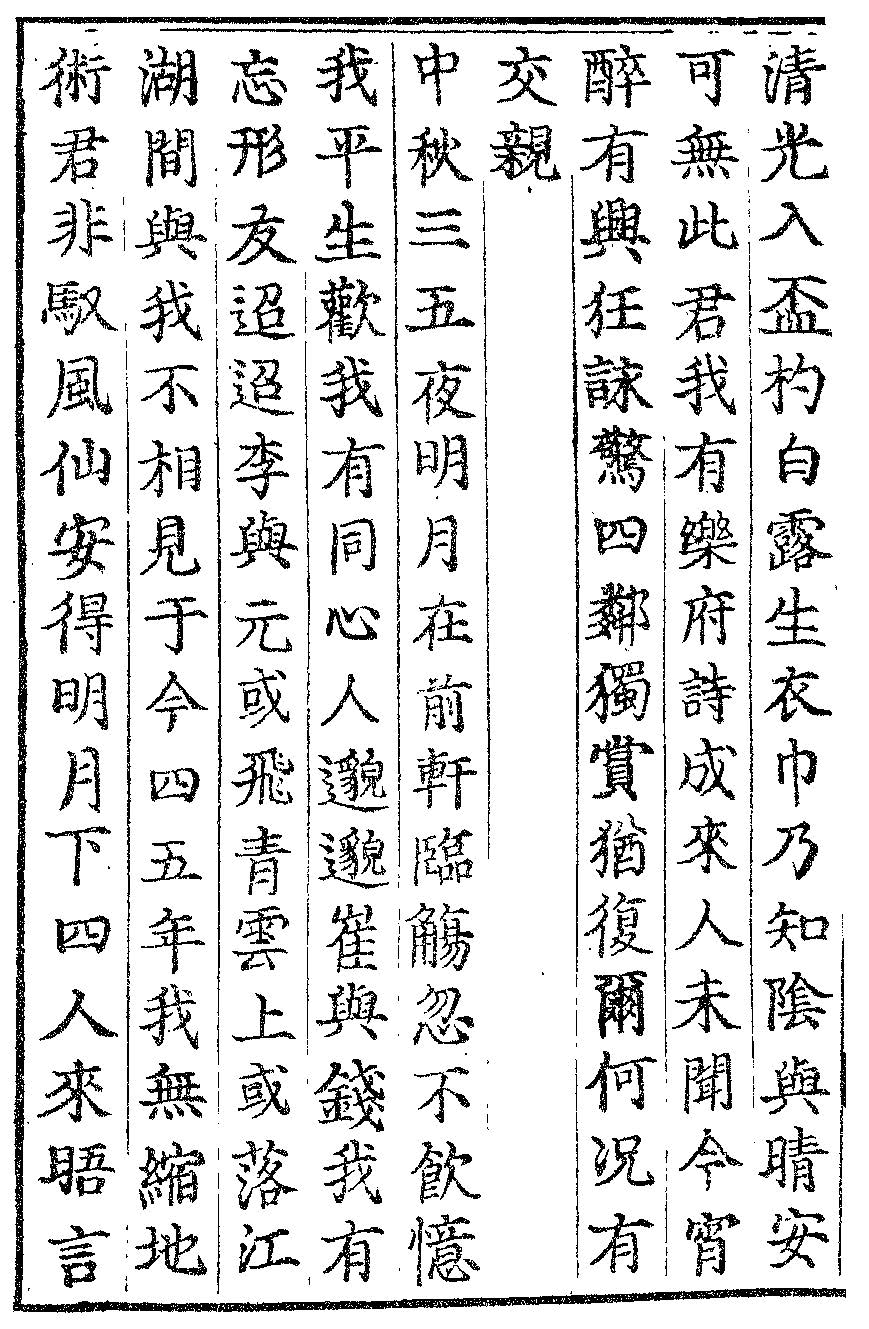 清光入盃杓白露生衣巾乃知陰與晴安
可無此君我有樂府詩成來人未聞今宵
醉有興狂詠驚四鄰獨賞猶復爾何况有
交親
中秋三五夜明月在前軒臨觴忽不飲憶
我平生歡我有同心人邈邈崔與錢我有
忘形友迢迢李與元或飛青雲上或落江
湖間與我不相見于今四五年我無縮地
術君非馭風仙安得明月下四人來晤言